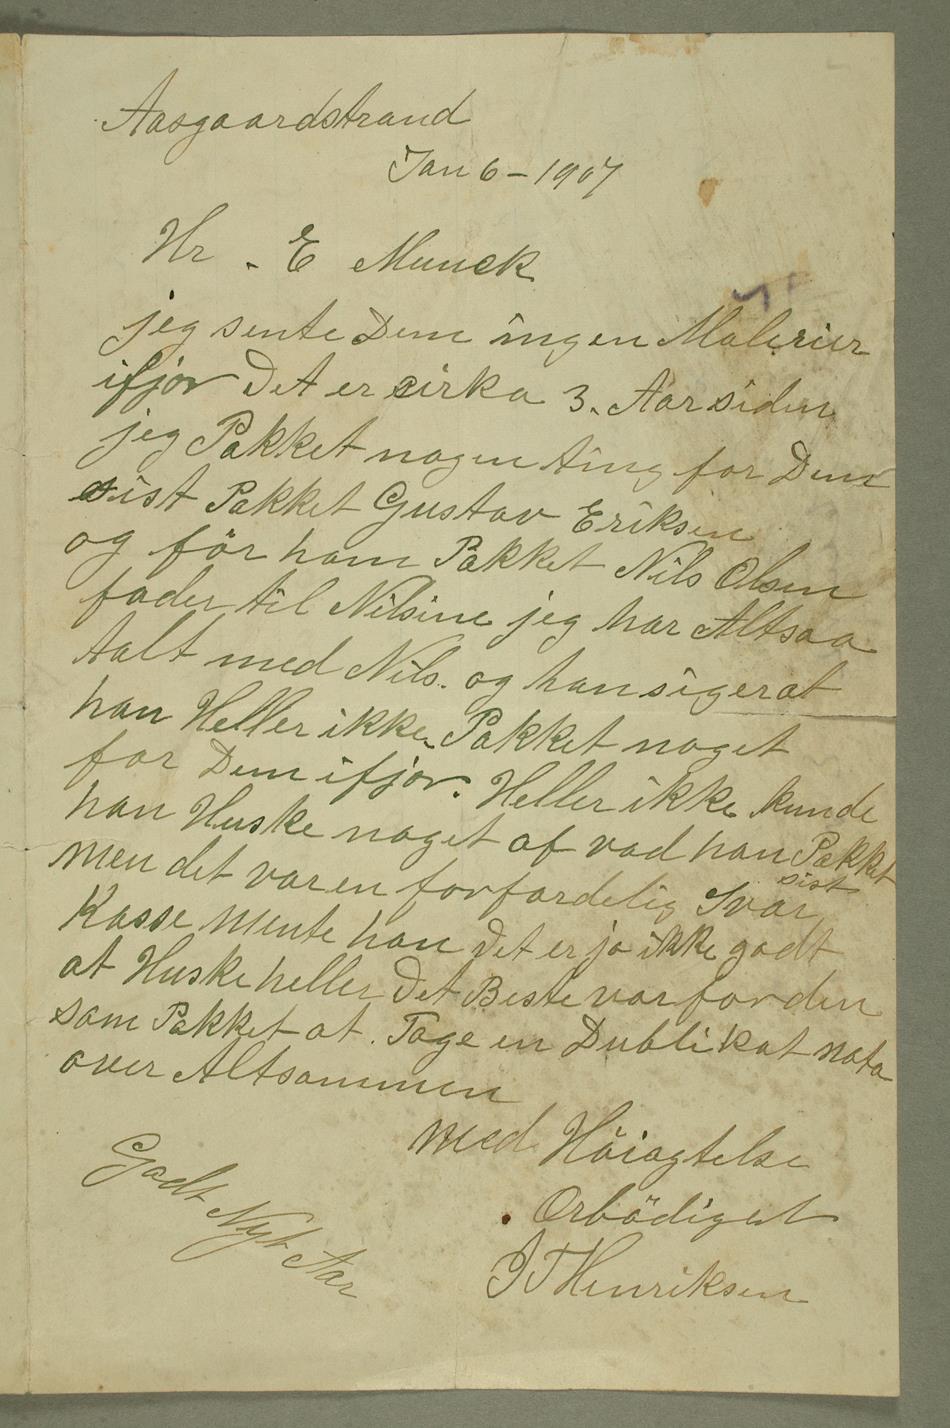 Aasgaardstrand
Jan 6 - 1907
Hr. E Munck
jeg sente Dem ingen Malerier
ifjor Det er sirka 3. Aar siden
jeg Pakket nogen ting for Dem
sist Pakket Gustav Eriksen
og för ham Pakket Nils Olsen
fader til Nilsine jeg har Altsaa
talt med Nils. og han siger at
han Heller ikke Pakket noget
for Dem ifjor. Heller ikke kunde
han Huske noget af vad han Pakket
sist
men det var en forfardelig Svar
Kasse mente han Det er jo ikke godt
at Huske heller Det Beste var for den
som Pakket at. Tage en Dublikat nota
over Altsammen
med Höiagtelse
Orbödigest
J T Henriksen
Godt Nyt Aar